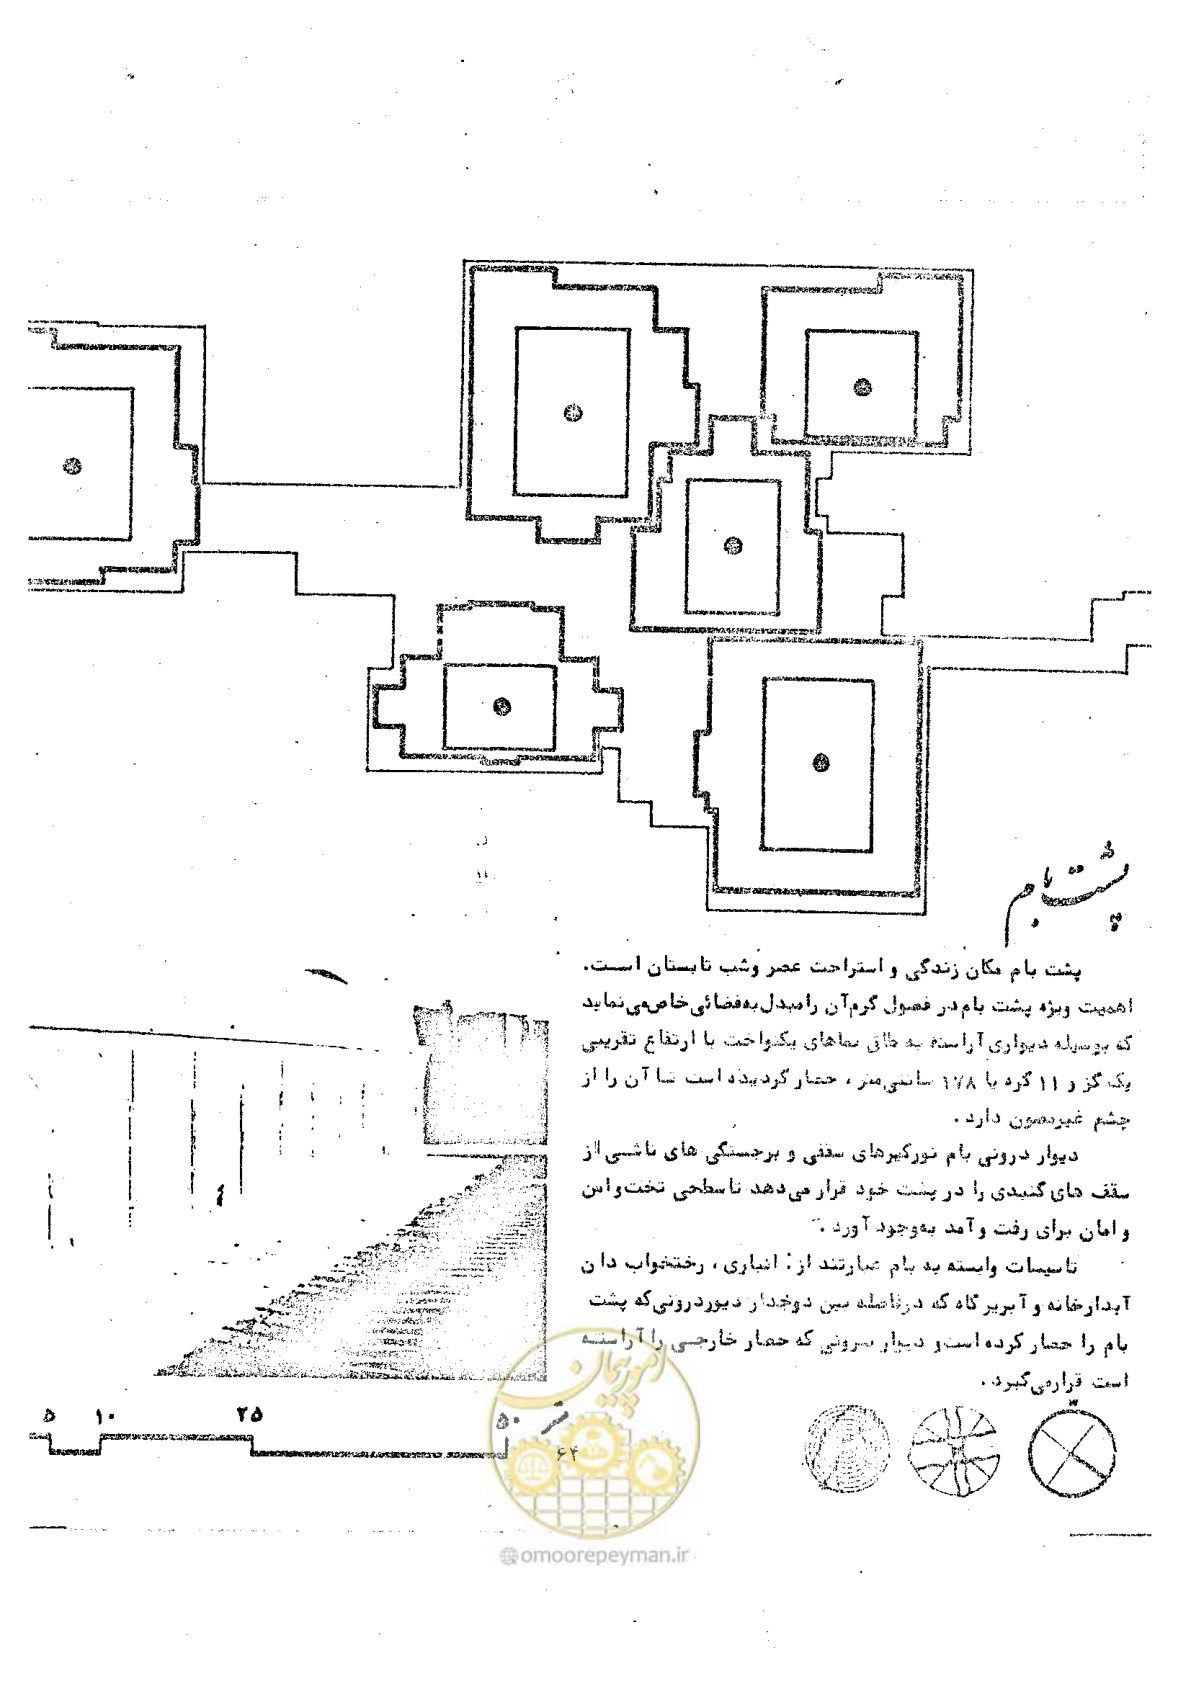 پشت بام
پشت بام مکان زندگی و استراحت عصر وشب تابستان است.
اهمیت ویژه پشت بام در فصول گرم آن را مبدل به فضائی خاص می نماید
که بوسیله دیواری آراسته به طاق نماهای یکنواخت با ارتفاع تقریبی
یک گز و ۱۱ گره یا ۱۷۸ سانتی متر ، حصار گردیده است تا آن را از
چشم غیر مصون دارد .
دیوار درونی بام نورگیرهای سقفی و برجستگی های ناشی از
سقف های گنبدی را در پشت خود قرار می دهد تا سطحی تخت و امن
و امان برای رفت و آمد به وجود آورد .
تاسیسات وابسته به بام عبارتند از: انباری ، رختخواب دان
آبدارخانه و آبریزگاه که در فاصله بین دو جدار دیوردرونی که پشت
بام را حصار کرده است و دیوار بیرونی که حصار خارجی را آراسته
است قرار می گیرد .
۵ ۱۰ ۲۵ ۵۰ متر
۶۴
امور پیمان
@omoorepeyman.ir